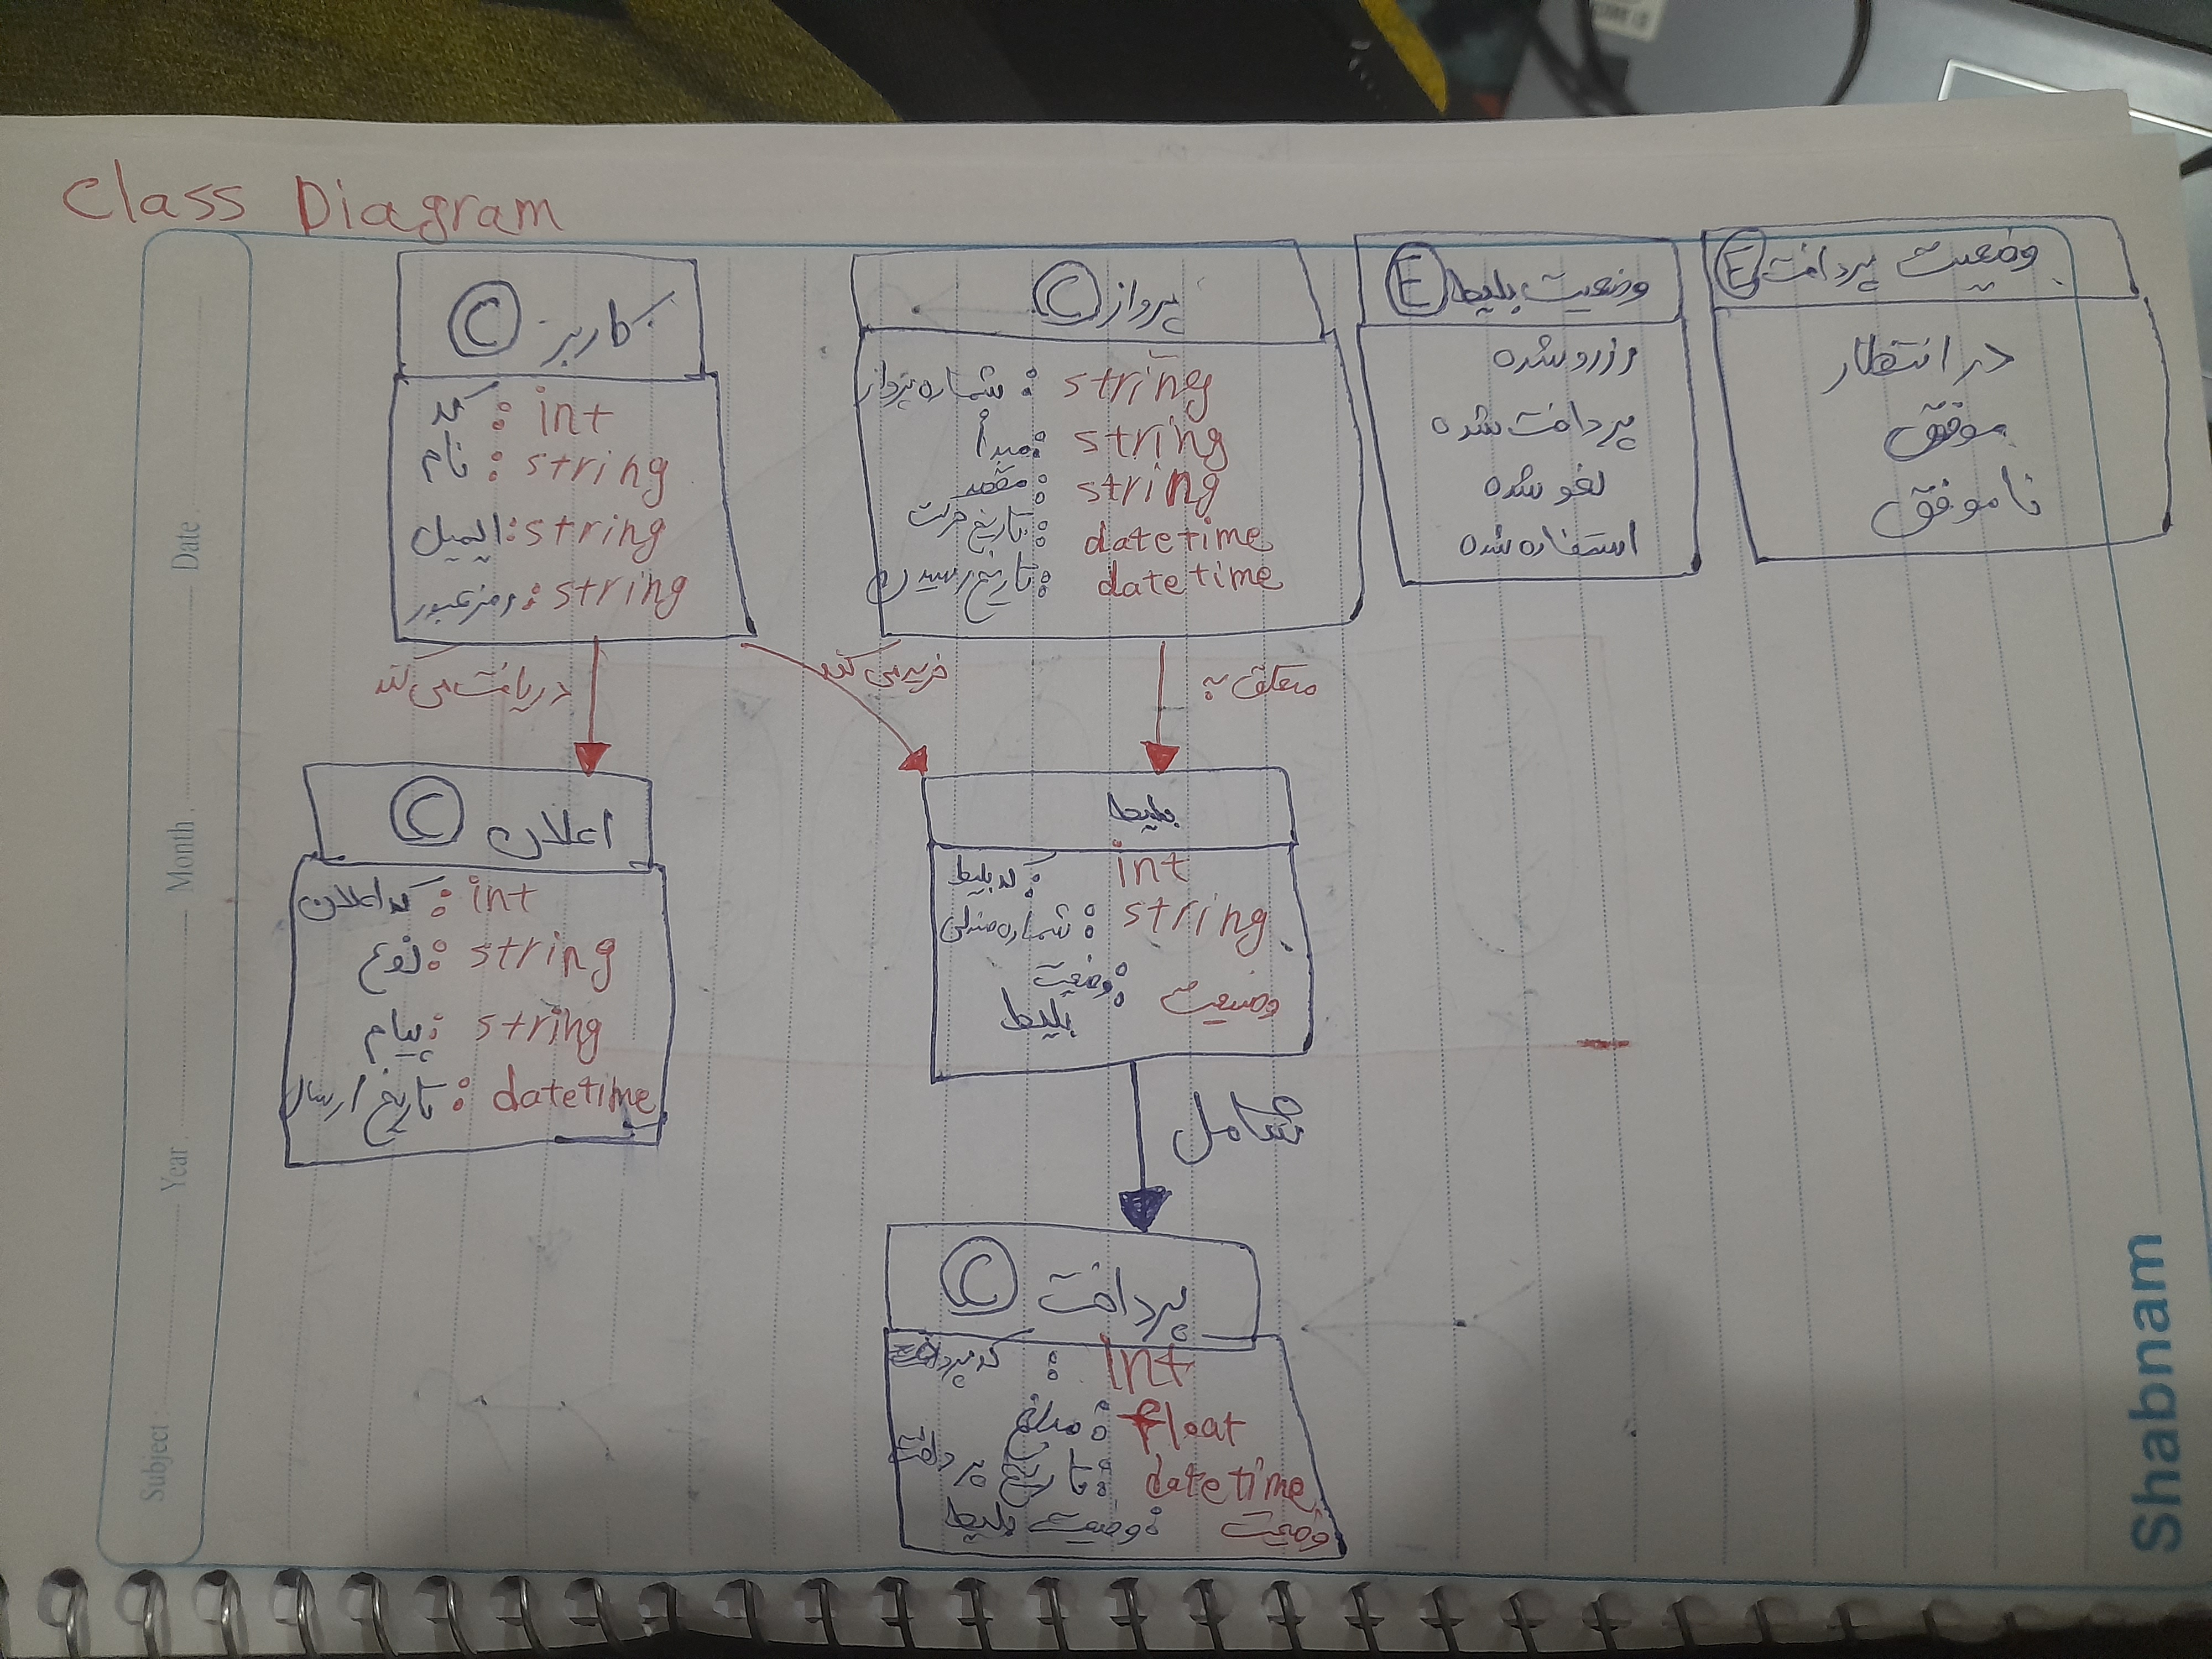 Class Diagram
کاربر C
کد : int
نام : string
ایمیل : string
رمز عبور : string
پرواز C
شماره پرواز : string
مبدأ : string
مقصد : string
تاریخ حرکت : datetime
تاریخ رسیدن : datetime
وضعیت بلیط E
رزرو شده
پرداخت شده
لغو شده
استفاده شده
وضعیت پرداخت E
در انتظار
موفق
نا موفق
دریافت می کند
خرید می کند
متعلق به
اعلان C
کد اعلان : int
نوع : string
پیام : string
تاریخ ارسال : datetime
بلیط
کد بلیط : int
شماره صندلی : string
وضعیت : وضعیت
بلیط
شامل
پرداخت C
کد پرداخت : Int
مبلغ : float
تاریخ پرداخت : datetime
وضعیت بلیط : وضعیت
Subject :
Year .
Month .
Date .
Shabnam